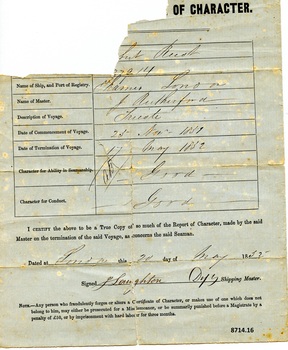 OF CHARACTER.
Name of Ship, and Port of Registry. Thames London
Name of Master. J Rutherford
Description of Voyage.
Date of Commencement of Voyage. 25 Nov 1851
Date of Termination of Voyage. 17 May 1852
Character for Ability in Seamanship. Good
Character for Conduct. Good
I CERTIFY the above to be a True Copy of so much of the Report of Character, made by the said
Master on the termination of the said Voyage, as concerns the said Seaman.
Dated at London this day of May 185
Signed J Laughton Dpy Shipping Master.
NOTE.—Any person who fraudulently forges or alters a Certificate of Character, or makes use of one which does not
belong to him, may either be prosecuted for a Misdemeanor, or be summarily punished before a Magistrate by a
penalty of £50, or by imprisonment with hard labor for three months.
8714.16